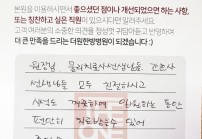 본원을 이용하시면서 좋으셨던 점이나 개선되었으면 하는 사항,
또는 칭찬하고 싶은 직원이 있으시다면 알려주세요.
고객여러분의 소중한 의견을 정성껏 귀담아듣고 반영하여
더 큰 만족을 드리는 더원한방병원이 되겠습니다 :)
원장님 물리치료사선생님들 간호사
선생님들 모두 친절하시고
시설도 깨끗하여 입원하는 동안
편안히 치료받을수 있어